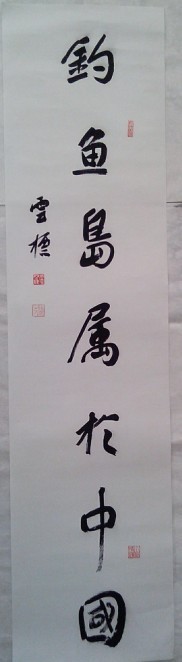 釣鱼島属於中國
雲標